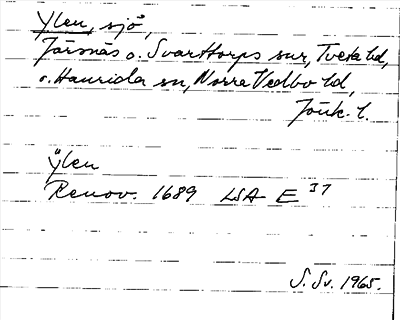 Ylen, sjö,
Järsnäs o. Svarttorps snr, Tveta hd,
o. Haurida sn, Norra Vedbo hd,
Jönk. l.
Ylen
Renov. 1689 LSA E 37
S. Sv. 1965.